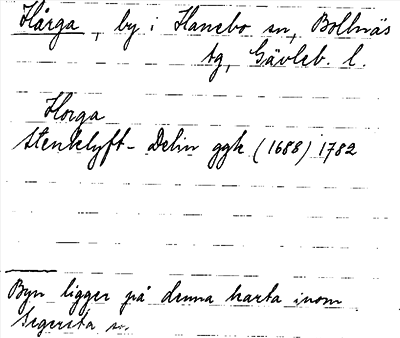 Hårga, by i Hanebo sn, Bollnäs
tg, Gävleb. l.
Horga
Stenklyft - Delin ggk (1688) 1782
Byn ligger på denna karta inom
Segersta sn.